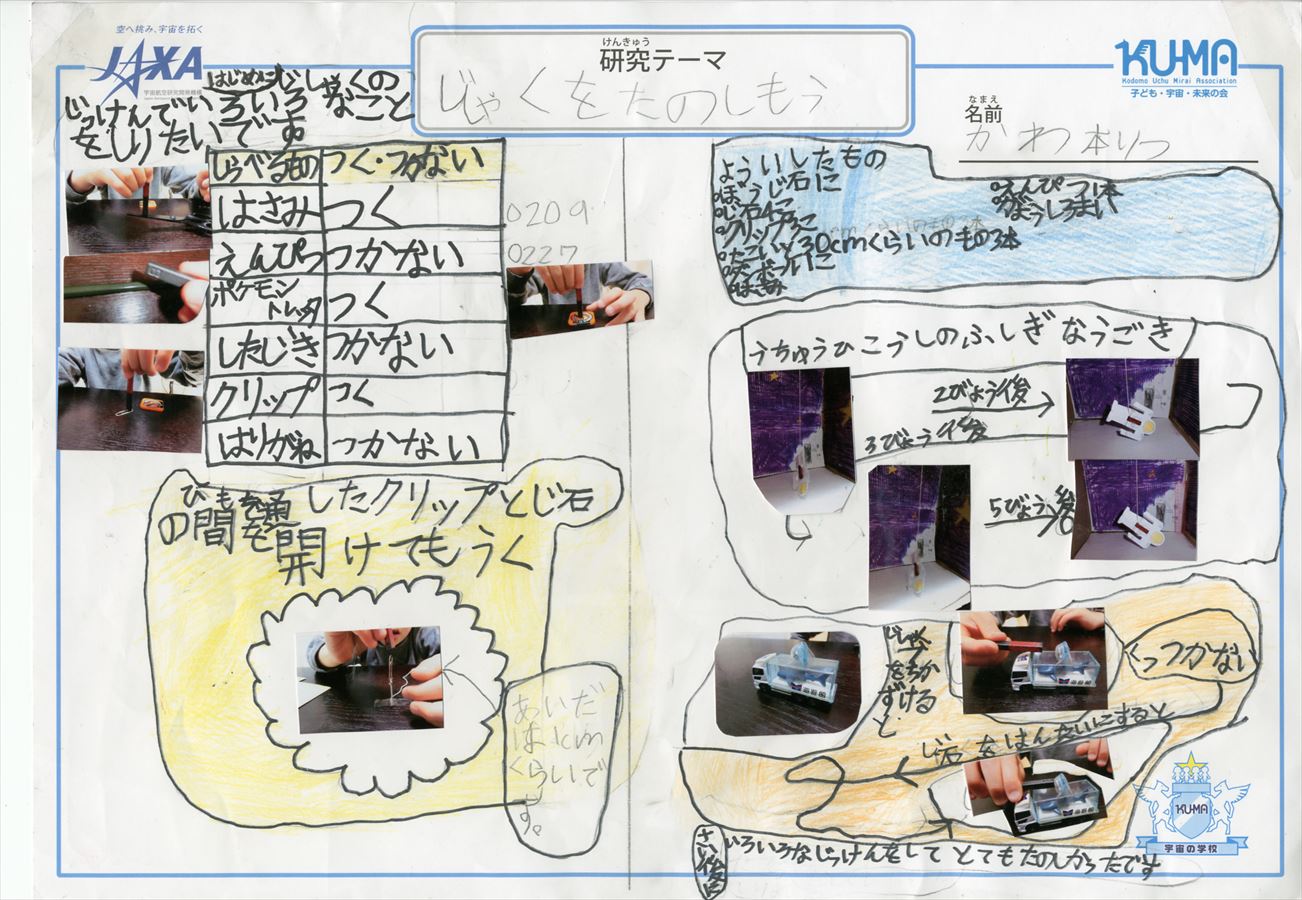 空へ挑み、宇宙を拓く
JAXA
宇宙航空研究開発機構
けんきゅう
研究テーマ
じしゃくをたのしもう
KUMA
Kodomo Uchu Mirai Association
子ども・宇宙・未来の会
なまえ
名前
かわ本りつ
はじめにじしゃくの
じっけんでいろいろなこと
をしりたいです
しらべるもの つく・つかない
はさみ つく
えんぴつ つかない
ポケモン
トレッタ つく
したじき つかない
クリップ つく
はりがね つかない
0209
0227
ひもを通したクリップとじ石
の間を開けてもうく
あいだ
は1cm
くらいで
す。
よういしたもの
ぼうじ石1こ
じ石4こ
クリップ3こ
たこいと30cmくらいのもの3本
えんぴつ1本
がようし3まい
はさみ
うちゅうひこうしのふしぎなうごき
2びょう後
3びょう後
5びょう後
じしゃく
をちか
ずける
と
くっつかない
じ石をはんたいにすると
さい後に
いろいろなじっけんをしてとてもたのしかったです
KUMA
宇宙の学校